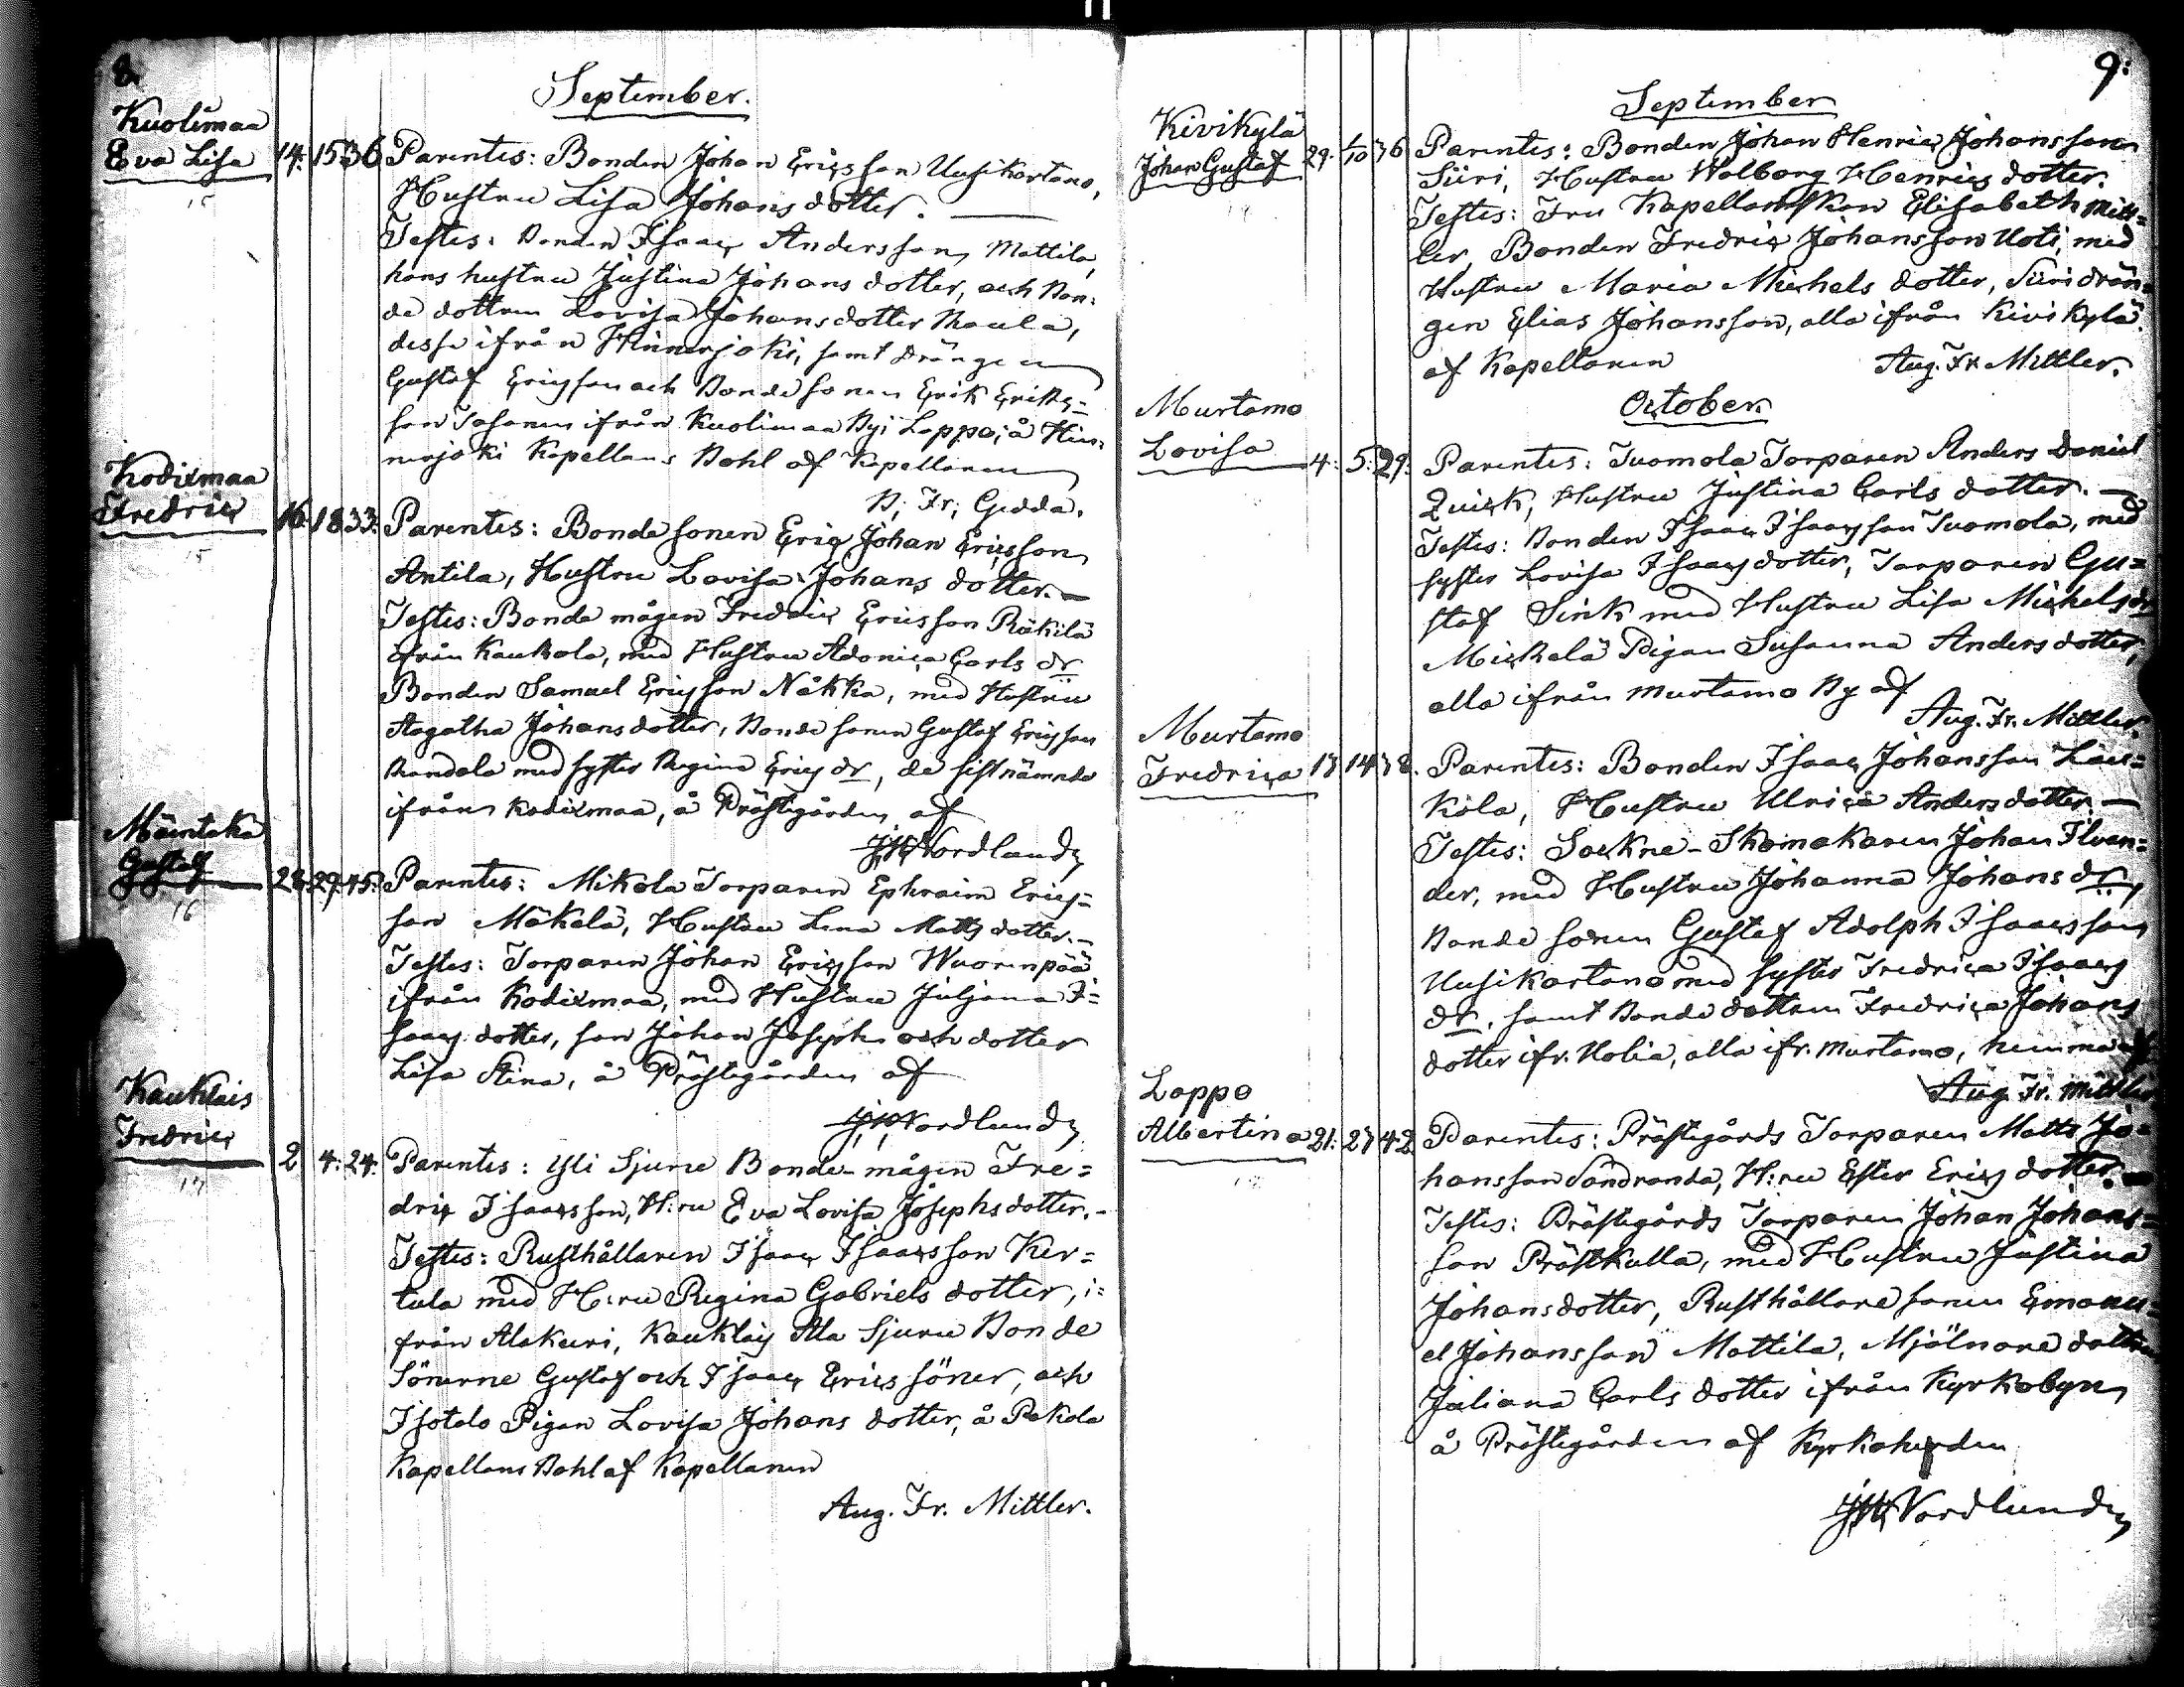 8.
September.
Kuolimaa
Eva Lisa 14. 15 36 Parentes: Bonden Johan Ericsson Uusikartano,
Hustru Lisa Johans dotter.
Testes: Bonden Isaac Andersson Mattila,
hans hustru Justina Johans dotter, och Bon=
de dottren Lovisa Johans dotter
dessa ifrån Hinnerjoki, samt drängen
Gustaf Ericsson och Bonde sonen Erik Eriks=
son ifrån Kuolimaa By i Lappo; å Hin=
nerjoki Kapellans Bohl af Kapellanen
Fr. Gedda.
Kodixmaa
Fredric 16. 18 33. Parentes: Bonde sonen Eric Johan Ericsson
Antila, Hustru Lovisa Johans dotter.
Testes: Bonde mågen Fredric Ericsson Räkilä
ifrån Kaukola, med Hustru Adonica Carls dr
Bonden Samuel Ericsson Näkka, med Hustru
Agatha Johans dotter, Bonde sonen Gustaf Ericsson
med syster Regina Erics dr, de sistnämnde
ifrån Kodixmaa, å Prästegården af
JH Nordlund
Mäentaka
Gustaf 28. 29. 45. Parentes: Mikola Torparen Ephraim Erics=
son Mäkelä, Hustru Lena Matts dotter.
Testes: Torparen Johan Ericsson Wuorenpää
ifrån Kodixmaa, med Hustru Juljana I=
saacs dotter, son Johan Joseph och dotter
Lisa Stina, å Prästegården af
JH Nordlund
Kauklais
Fredric 2 4. 24. Parentes: Yli Sjure Bonde-mågen Fre=
dric Isaacsson, H:ru Eva Lovisa Josephs dotter.
Testes: Rusthållaren Isaac Isaacsson Ker=
tula med H:ru Regina Gabriels dotter, i=
från Alakuri, Kauklais Ala Sjuru Bonde
Sönerne Gustaf och Isaac Erics söner, och
Isotalo Pigan Lovisa Johans dotter, å Pakola
Kapellans Bohl af Kapellanen
Aug. Fr. Mittler.
9.
September
Kivikylä
Johan Gustaf 29. 1/10 36 Parentes: Bonden Johan Henric Johansson
Siiri, Hustru Walborg Henrics dotter.
Testes: Fru Kapellanskan Elisabeth Mitt=
ler, Bonden Fredric Johansson Uoti, med
Hustru Maria Michels dotter, Siiri drän=
gen Elias Johansson, alla ifrån Kivikylä.
af Kapellanen Aug. Fr. Mittler.
October
Murtamo
Lovisa 4. 5. 29. Parentes: Tuomola Torparen Anders Daniel
Quick, Hustru Justina Carls dotter.
Testes: Bonden Isaac Isaacsson Tuomola, med
syster Lovisa Isaacs dotter, Torparen Gu=
staf Sink med Hustru Lisa Mickels dr
Mickelä Pigan Susanna Anders dotter,
alla ifrån Murtamo By af
Aug. Fr. Mittler.
Murtamo
Fredrica 13 14 38. Parentes: Bonden Isaac Johansson
köla, Hustru Ulrica Anders dotter
Testes: Sockne-Skomakaren Johan Ilvan=
der, med Hustru Johanna Johans dr,
Bonde sonen Gustaf Adolph Isaacsson
Uusikartano med syster Fredrica Isaacs
dr, samt Bonde dottren Fredrica Johans
dotter ifr. Uolia, alla ifr. Murtamo, hemma af
Aug. Fr. Mittler
Lappo
Albertina 21. 23 42 Parentes: Prästegårds Torparen Matts Jo=
hansson Sandranda, H:ru Ester Erics dotter.
Testes: Prästegårds Torparen Johan Johans=
son Prästkulla, med Hustru Justina
Johans dotter, Rusthållare sonen Emanu=
el Johansson Mattila, Mjölnare dottren
Juliana Carls dotter ifrån Kyrkobyn,
å Prästegården af Kyrkoherden
JH Nordlund